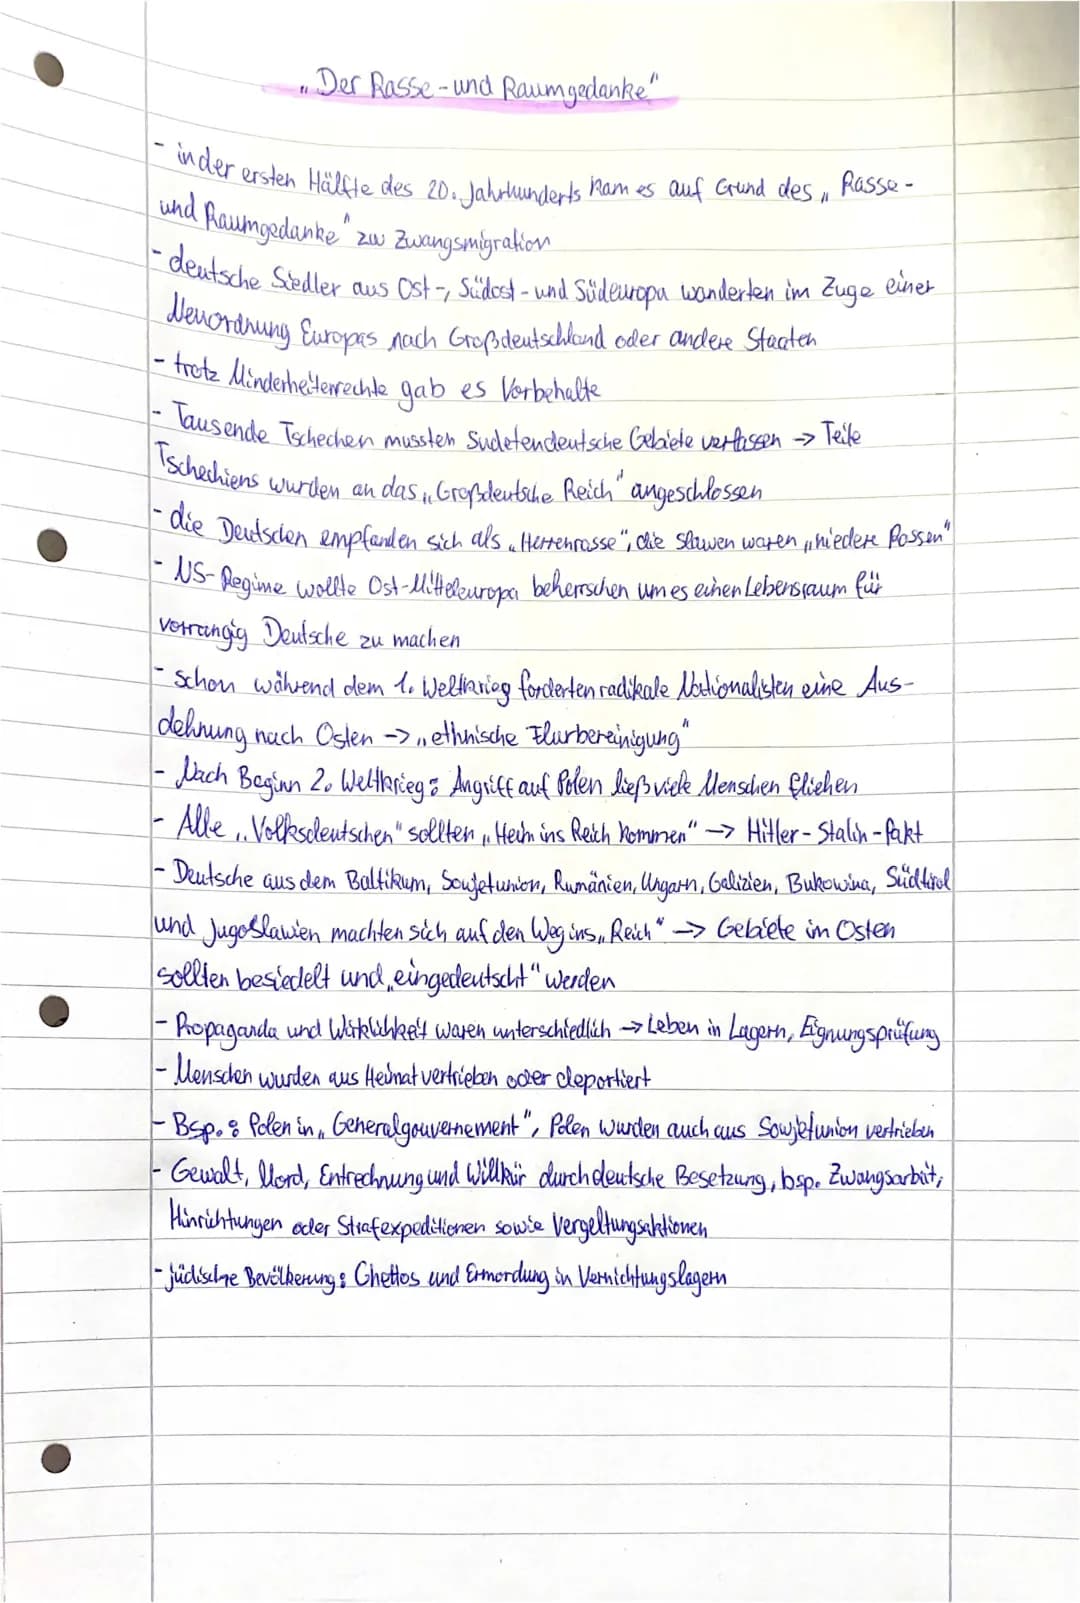 „Der Rasse - und Raumgedanke"
- in der ersten Hälfte des 20. Jahrhunderts kam es auf Grund des „Rasse -
und Raumgedanke" zur Zwangsmigration
- deutsche Siedler aus Ost-, Südost - und Südeuropa wanderten im Zuge einer
Neuordnung Europas nach Großdeutschland oder andere Staaten
- trotz Minderheitenrechte gab es Vorbehalte
- Tausende Tschechen mussten Sudetendeutsche Gebiete verlassen -> Teile
Tschechiens wurden an das „Großdeutsche Reich" angeschlossen
- die Deutschen empfanden sich als „Herrenrasse", die Slawen waren „niedere Rassen"
- NS-Regime wollte Ost-Mitteleuropa beherrschen um es einen Lebensraum für
vorrangig Deutsche zu machen
- schon während dem 1. Weltkrieg forderten radikale Nationalisten eine Aus-
dehnung nach Osten -> „ethnische Flurbereinigung"
- Nach Beginn 2. Weltkrieg: Angriff auf Polen ließ viele Menschen fliehen
- Alle „Volksdeutschen" sollten „Heim ins Reich kommen" -> Hitler - Stalin - Pakt
- Deutsche aus dem Baltikum, Sowjetunion, Rumänien, Ungarn, Galizien, Bukowina, Südtirol
und Jugoslawien machten sich auf den Weg ins „Reich" -> Gebiete im Osten
sollten besiedelt und „eingedeutscht" werden
- Propaganda und Wirklichkeit waren unterschiedlich -> Leben in Lagern, Eignungsprüfung
- Menschen wurden aus Heimat vertrieben oder deportiert
- Bsp.: Polen in „Generalgouvernement", Polen wurden auch aus Sowjetunion vertrieben
- Gewalt, Mord, Entrechnung und Willkür durch deutsche Besetzung, bsp. Zwangsarbeit,
Hinrichtungen oder Strafexpeditionen sowie Vergeltungsaktionen
- jüdische Bevölkerung: Ghettos und Ermordung in Vernichtungslagern